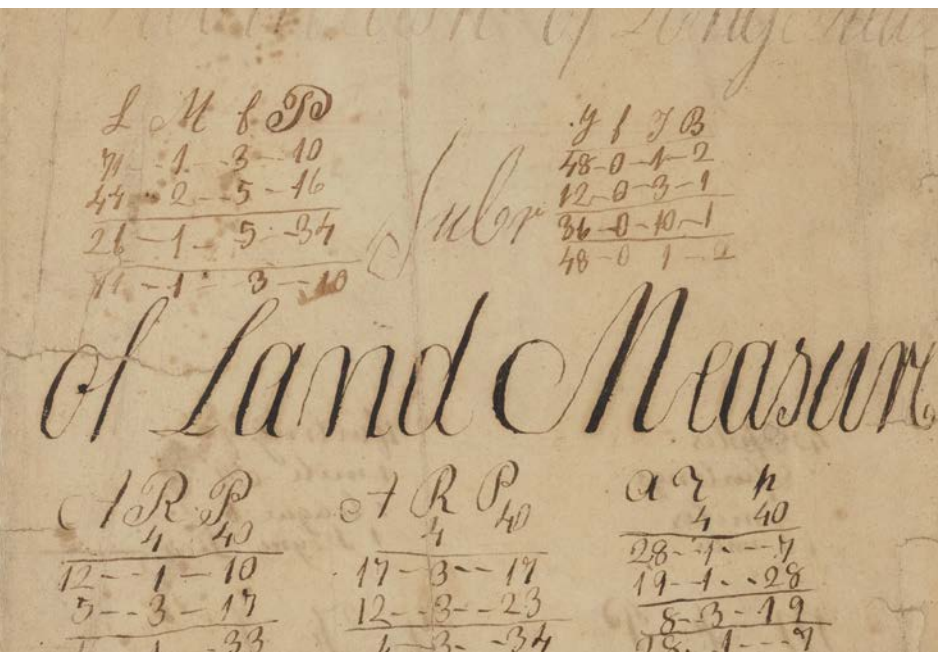 of Long Mea
L M f P
71 - 1 - 3 - 10
44 - 2 - 5 - 16
26 - 1 - 5 - 34
71 - 1 - 3 - 10
Subr
Y f I B
48-0-1-2
12-0-3-1
36-0-10-1
48-0 1-2
of Land Measure
A R P
4 40
12 - 1 - 10
5 - 3 - 17
1 - 33
A R P
4 40
17 - 3 - 17
12 - 3 - 23
4 - 3 - 34
a r p
4 40
28 - 1 - 7
19 - 1 - 28
8 - 3 - 19
28 - 1 - 7